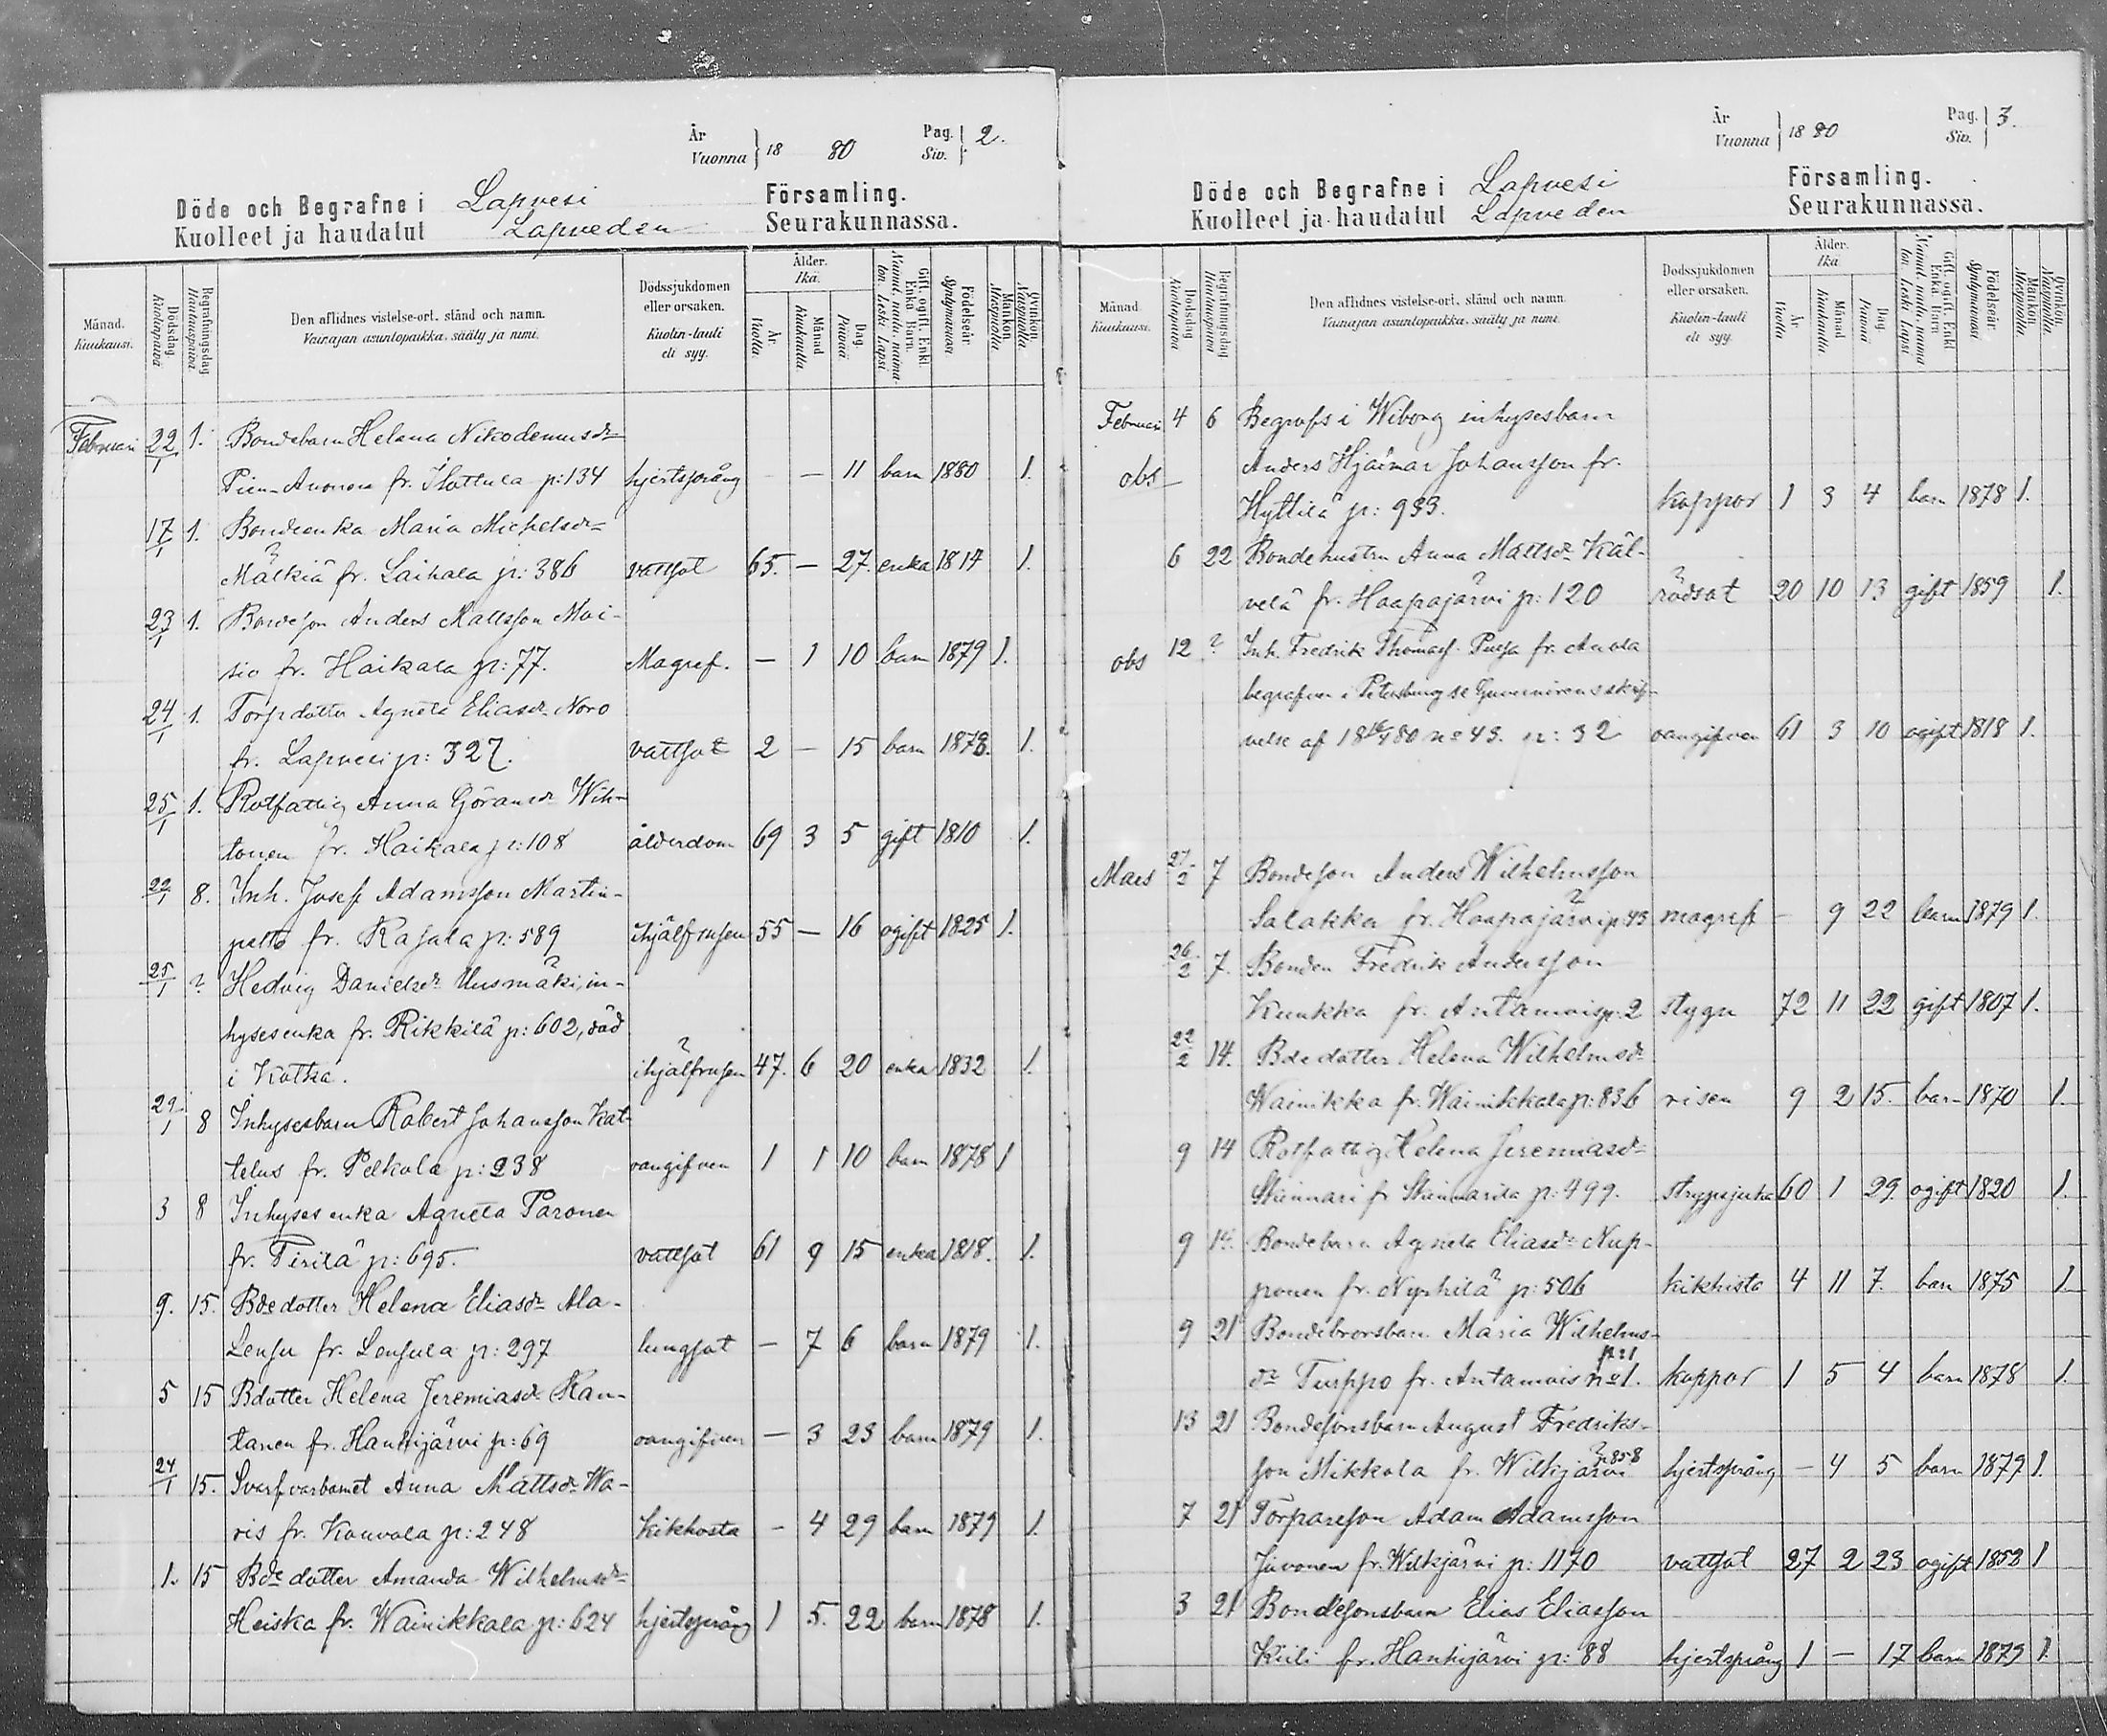 År Vuonna } 18 80 Pag. Siv. } 2.
Döde och Begrafne i Lapvesi Församling.
Kuolleet ja haudatut Lapveden Seurakunnassa.
Månad. Kuukausi. Dödsdag. Kuolinpäivä Begrafningsdag Hautauspäivä Den aflidnes vistelse-ort, stånd och namn. Vainajan asuntopaikka, sääty ja nimi. Dödssjukdomen eller orsaken. Kuolin-tauti eli syy. Ålder. Ikä. År Vuotta Månad Kuukautta Dag. Päivää Gift, ogift, Enkl. Enka Barn. Födelseår Syntymävuosi Mankön. Miespuolta Qvinkön. Naispuolta
Februari 22/1 1. Bondebarn Helena Nikodemusdr
Pien-Anonen fr. Ilottula p: 134 hjertsprång - — 11 barn 1880 1.
17/1 1. Bondeenka Maria Michelsdr
Mälkiä fr. Laihala p: 386 vattsot 65. — 27. enka 1814 1.
23/1 1. Bondeson Anders Mattsson Moi-
sio fr. Haikala p: 77. Magref. — 1 10 barn 1879 1.
24/1 1. Torpdotter Agneta Eliasdr Noro
fr. Lapvesi p: 327. vattsot 2 — 15 barn 1878. 1.
25/1 1. Rotfattig Anna Göransdr Wih-
tonen fr. Haikala p: 108 ålderdom 69 3 5 gift 1810 1.
22/1 8. Inh. Josef Adamsson Martin-
pelto fr. Rasala p: 589 ihjälfrusen 55 — 16 ogift 1825 1.
25/1 ? Hedvig Danielsdr Uusmäki, in-
hysesenka fr. Rikkilä p: 602, död
i Kotka. ihjälfrusen 47. 6 20 enka 1832 1.
29/1 8 Inhysesbarn Robert Johansson Kat-
telus fr. Pelkola p: 238 oangifven 1 1 10 barn 1878 1
3 8 Inhyses enka Agneta Paronen
fr. Tirilä p: 695. vattsot 61 9 15 enka 1818. 1.
9. 15. Bde dotter Helena Eliasdr Ala-
Lensu fr. Lensula p: 297 lungsot — 7 6 barn 1879 1.
5 15 Bdotter Helena Jeremiasdr Kan-
tanen fr. Hanhijärvi p: 69 oangifven — 3 23 barn 1879 1.
24/1 15. Svarfvarbarnet Anna Mattsdr Wa-
ris fr. Kouvola p: 248 Kikhosta - 4 29 barn 1879 1.
1. 15 Bde dotter Amanda Wilhelmsdr
Heiska fr. Wainikkala p: 624 hjertsprång 1 5. 22 barn 1878 1.
År Vuonna } 18 80 Pag. Siv. } 3.
Döde och Begrafne i Lapvesi Församling.
Kuolleet ja haudatut Lapveden Seurakunnassa.
Månad Kuukausi. Dödsdag Kuolinpäivä Begrafningsdag Hautauspäivä Den aflidnes vistelse-ort, stånd och namn. Vainajan asuntopaikka, sääty ja nimi. Dödssjukdomen eller orsaken. Kuolin-tauti eli syy. Ålder. Ikä. År Vuotta Månad Kuukautta Dag Päivää Gift, ogift, Enkl Enka Barn Födelseår Syntymävuosi Mankön. Miespuolta Qvinkön. Naispuolta
Februari 4 6 Begrafs i Wiborg inhysesbarn
obs Anders Hjalmar Johansson fr.
Hyttilä p: 933. Koppor 1 3 4 barn 1878 1.
6 22 Bondehustru Anna Mattsdr Käl-
velä fr. Haapajärvi p: 120 rödsot 20 10 13 gift 1859 1.
obs 12 ? Inh. Fredrik Thomass. Pusa fr. Anola
begrafven i Petersburg se Guvernörens skrif-
velse af 18 80 no 43. p: 32 oangifven 61 3 10 ogift 1818 1.
Mars 27/2 7 Bondeson Anders Wilhelmsson
Salakka fr. Haapajärvi p: 43 magref - 9 22 barn 1879 1.
26/2 7. Bonden Fredrik Andersson
Kunkka fr. Antamois p. 2 stygn 72 11 22 gift 1807 1.
22/2 14. Bde dotter Helena Wilhelmsdr
Wainikka fr. Wainikkala p: 836 risen 9 2 15. barn 1870 1.
9 14 Rotfattig Helena Jeremiasdr
Skinnari fr Skinnarila p: 499. strypsjuka 60 1 29 ogift 1820 1.
9 14. Bondebarn Agneta Eliasdr Nup-
ponen fr. Nyrhilä p: 506 kikhosta 4 11 7. barn 1875 1.
9 21 Bondebrorsbarn Maria Wilhelms-
dr Turppo fr. Antamois no 1. p: 1 koppor 1 5 4 barn 1878 1.
13 21 Bondesonsbarn August Fredriks-
son Mikkola fr. Wilkjärvi p. 858 hjertsprång - 4 5 barn 1879 1.
7 21 Torpareson Adam Adamsson
Juvonen fr. Wilkjärvi p: 1170 vattsot 27 2 23 ogift 1852 1
3 21 Bondesonsbarn Elias Eliasson
Kiili fr. Hanhijärvi p: 88 hjertsprång 1 — 17 barn 1879 1.